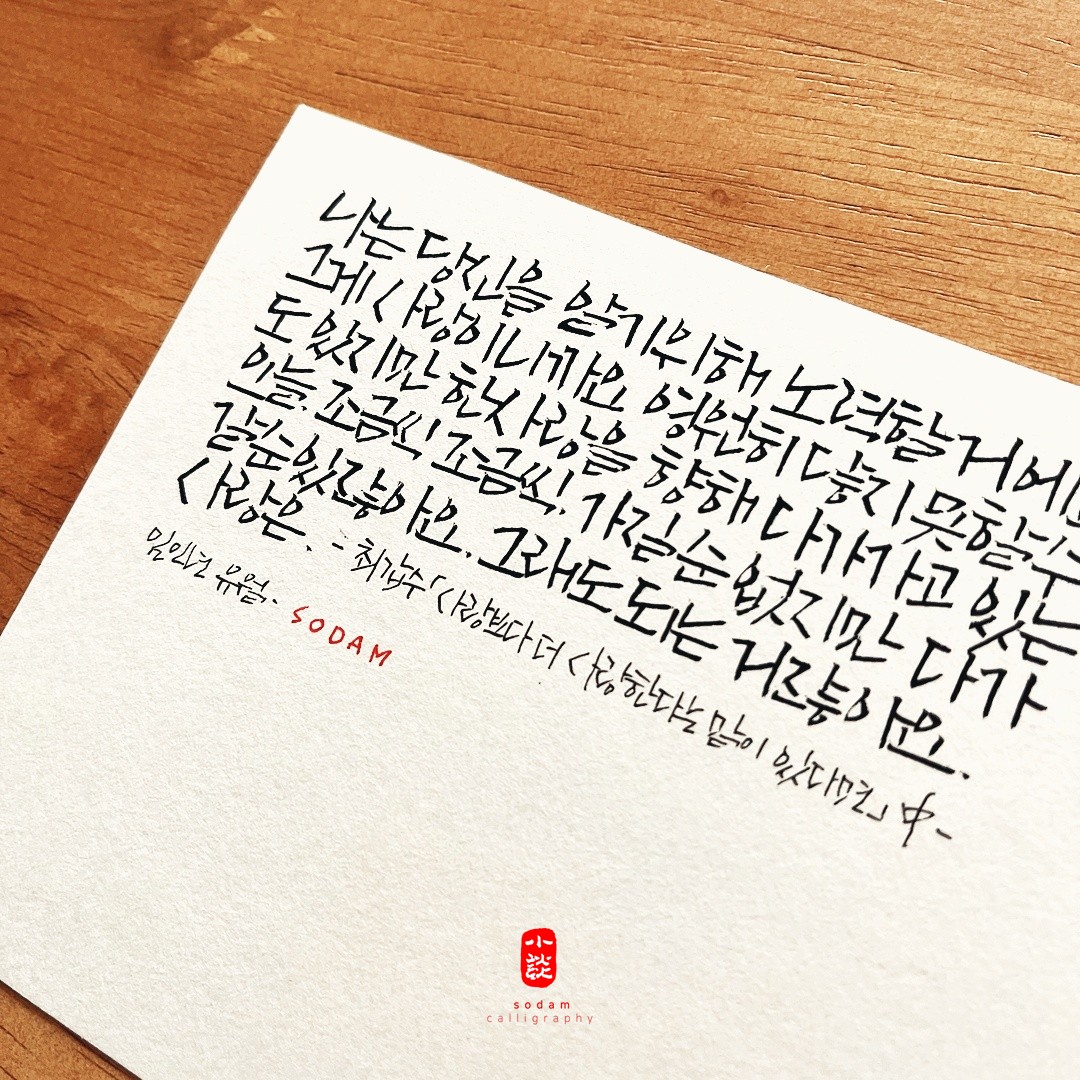 나는 당신을 알기위해 노력할거에요
그게 사랑이니까요. 영원히 닿지 못할수
도 있지만 한사람을 향해 다가가고 있는
오늘. 조금씩 조금씩. 가질순 없지만 다가
갈순있잖아요. 그래도 되는 거잖아요.
사랑은. - 최갑수 「사랑보다 더 사랑한다는 있다면」 中 -
임인년 유월. SODAM
小談
sodam
calligraphy